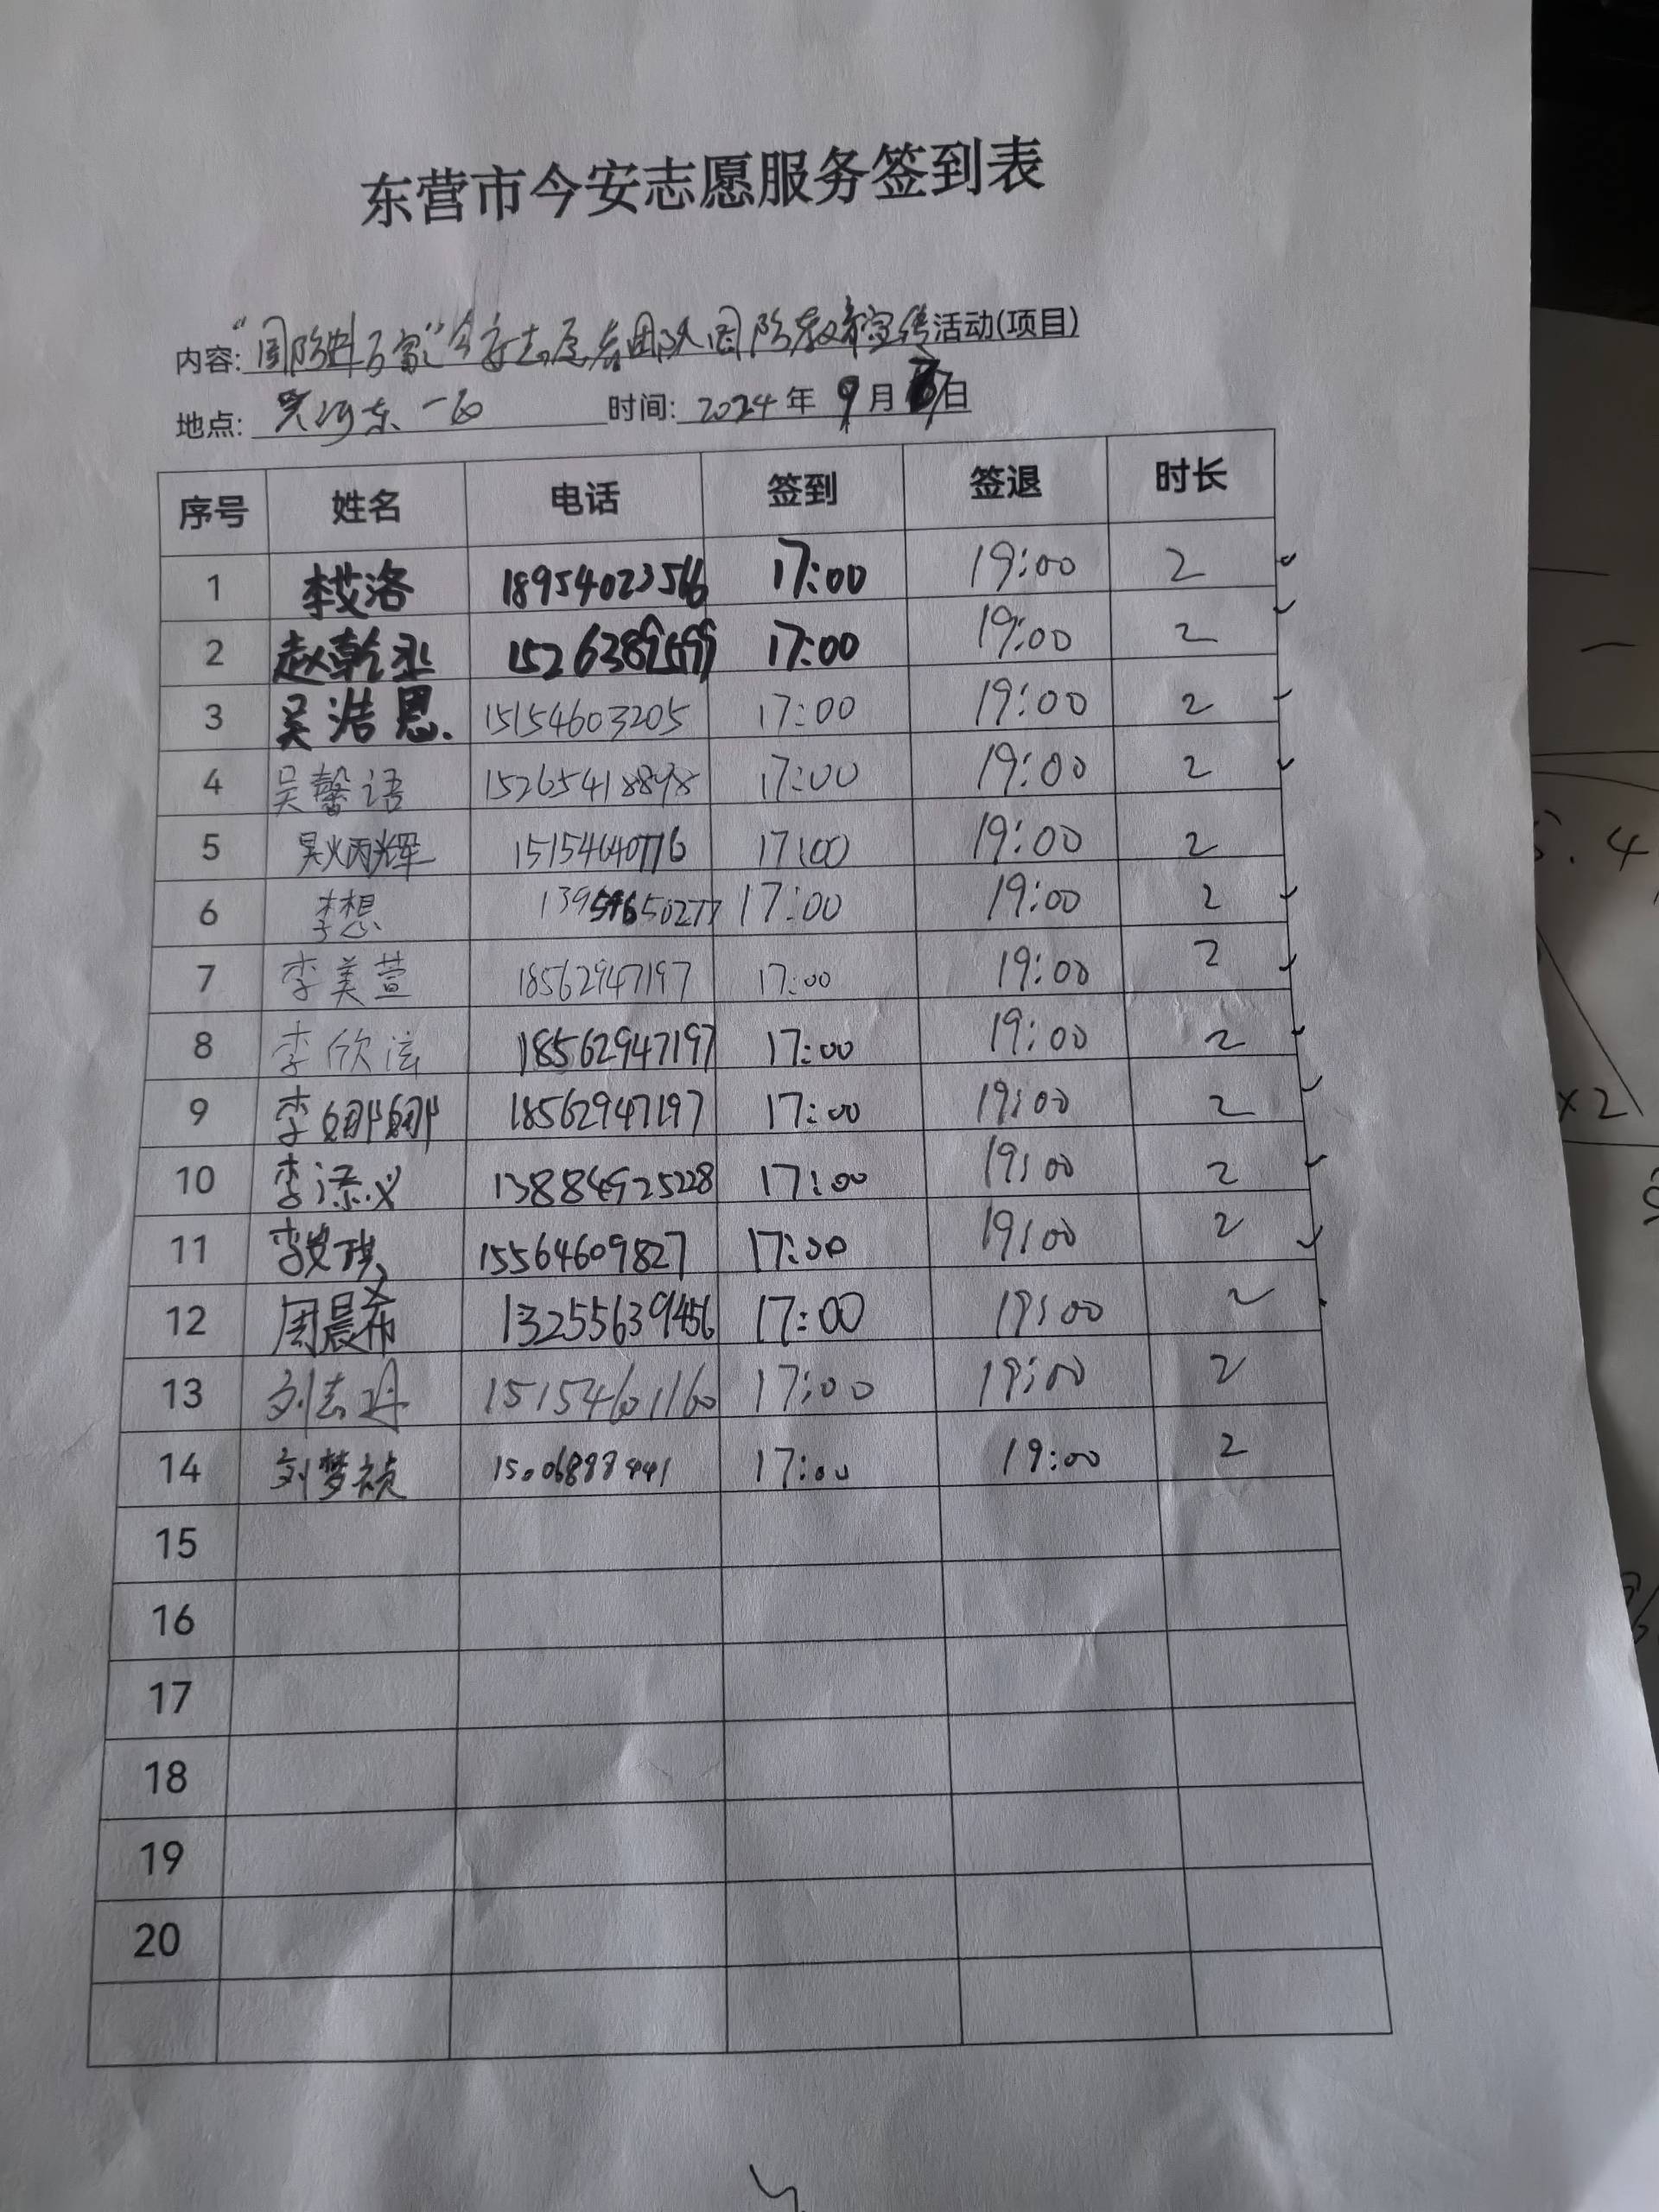 东营市今安志愿服务签到表
内容:"国防进万家"今安志愿者团队国防教育宣传活动(项目)
地点: 时间: 2024 年 9 月 日
序号 姓名 电话 签到 签退 时长
1 李艾洛 18954023566 17:00 19:00 2
2 赵乾丞 17:00 19:00 2
3 吴浩恩. 15154603205 17:00 19:00 2
4 吴馨语 15265418898 17:00 19:00 2
5 吴炳辉 15154640776 17:00 19:00 2
6 李想 13954650277 17:00 19:00 2
7 李美萱 18562947197 17:00 19:00 2
8 李欣泫 18562947197 17:00 19:00 2
9 李娜娜 18562947197 17:00 19:00 2
10 13884925228 17:00 19:00 2
11 15564609827 17:00 19:00 2
12 周晨希 13255639456 17:00 19:00 2
13 刘志丹 15154601160 17:00 19:00 2
14 刘梦祯 15006898441 17:00 19:00 2
15
16
17
18
19
20